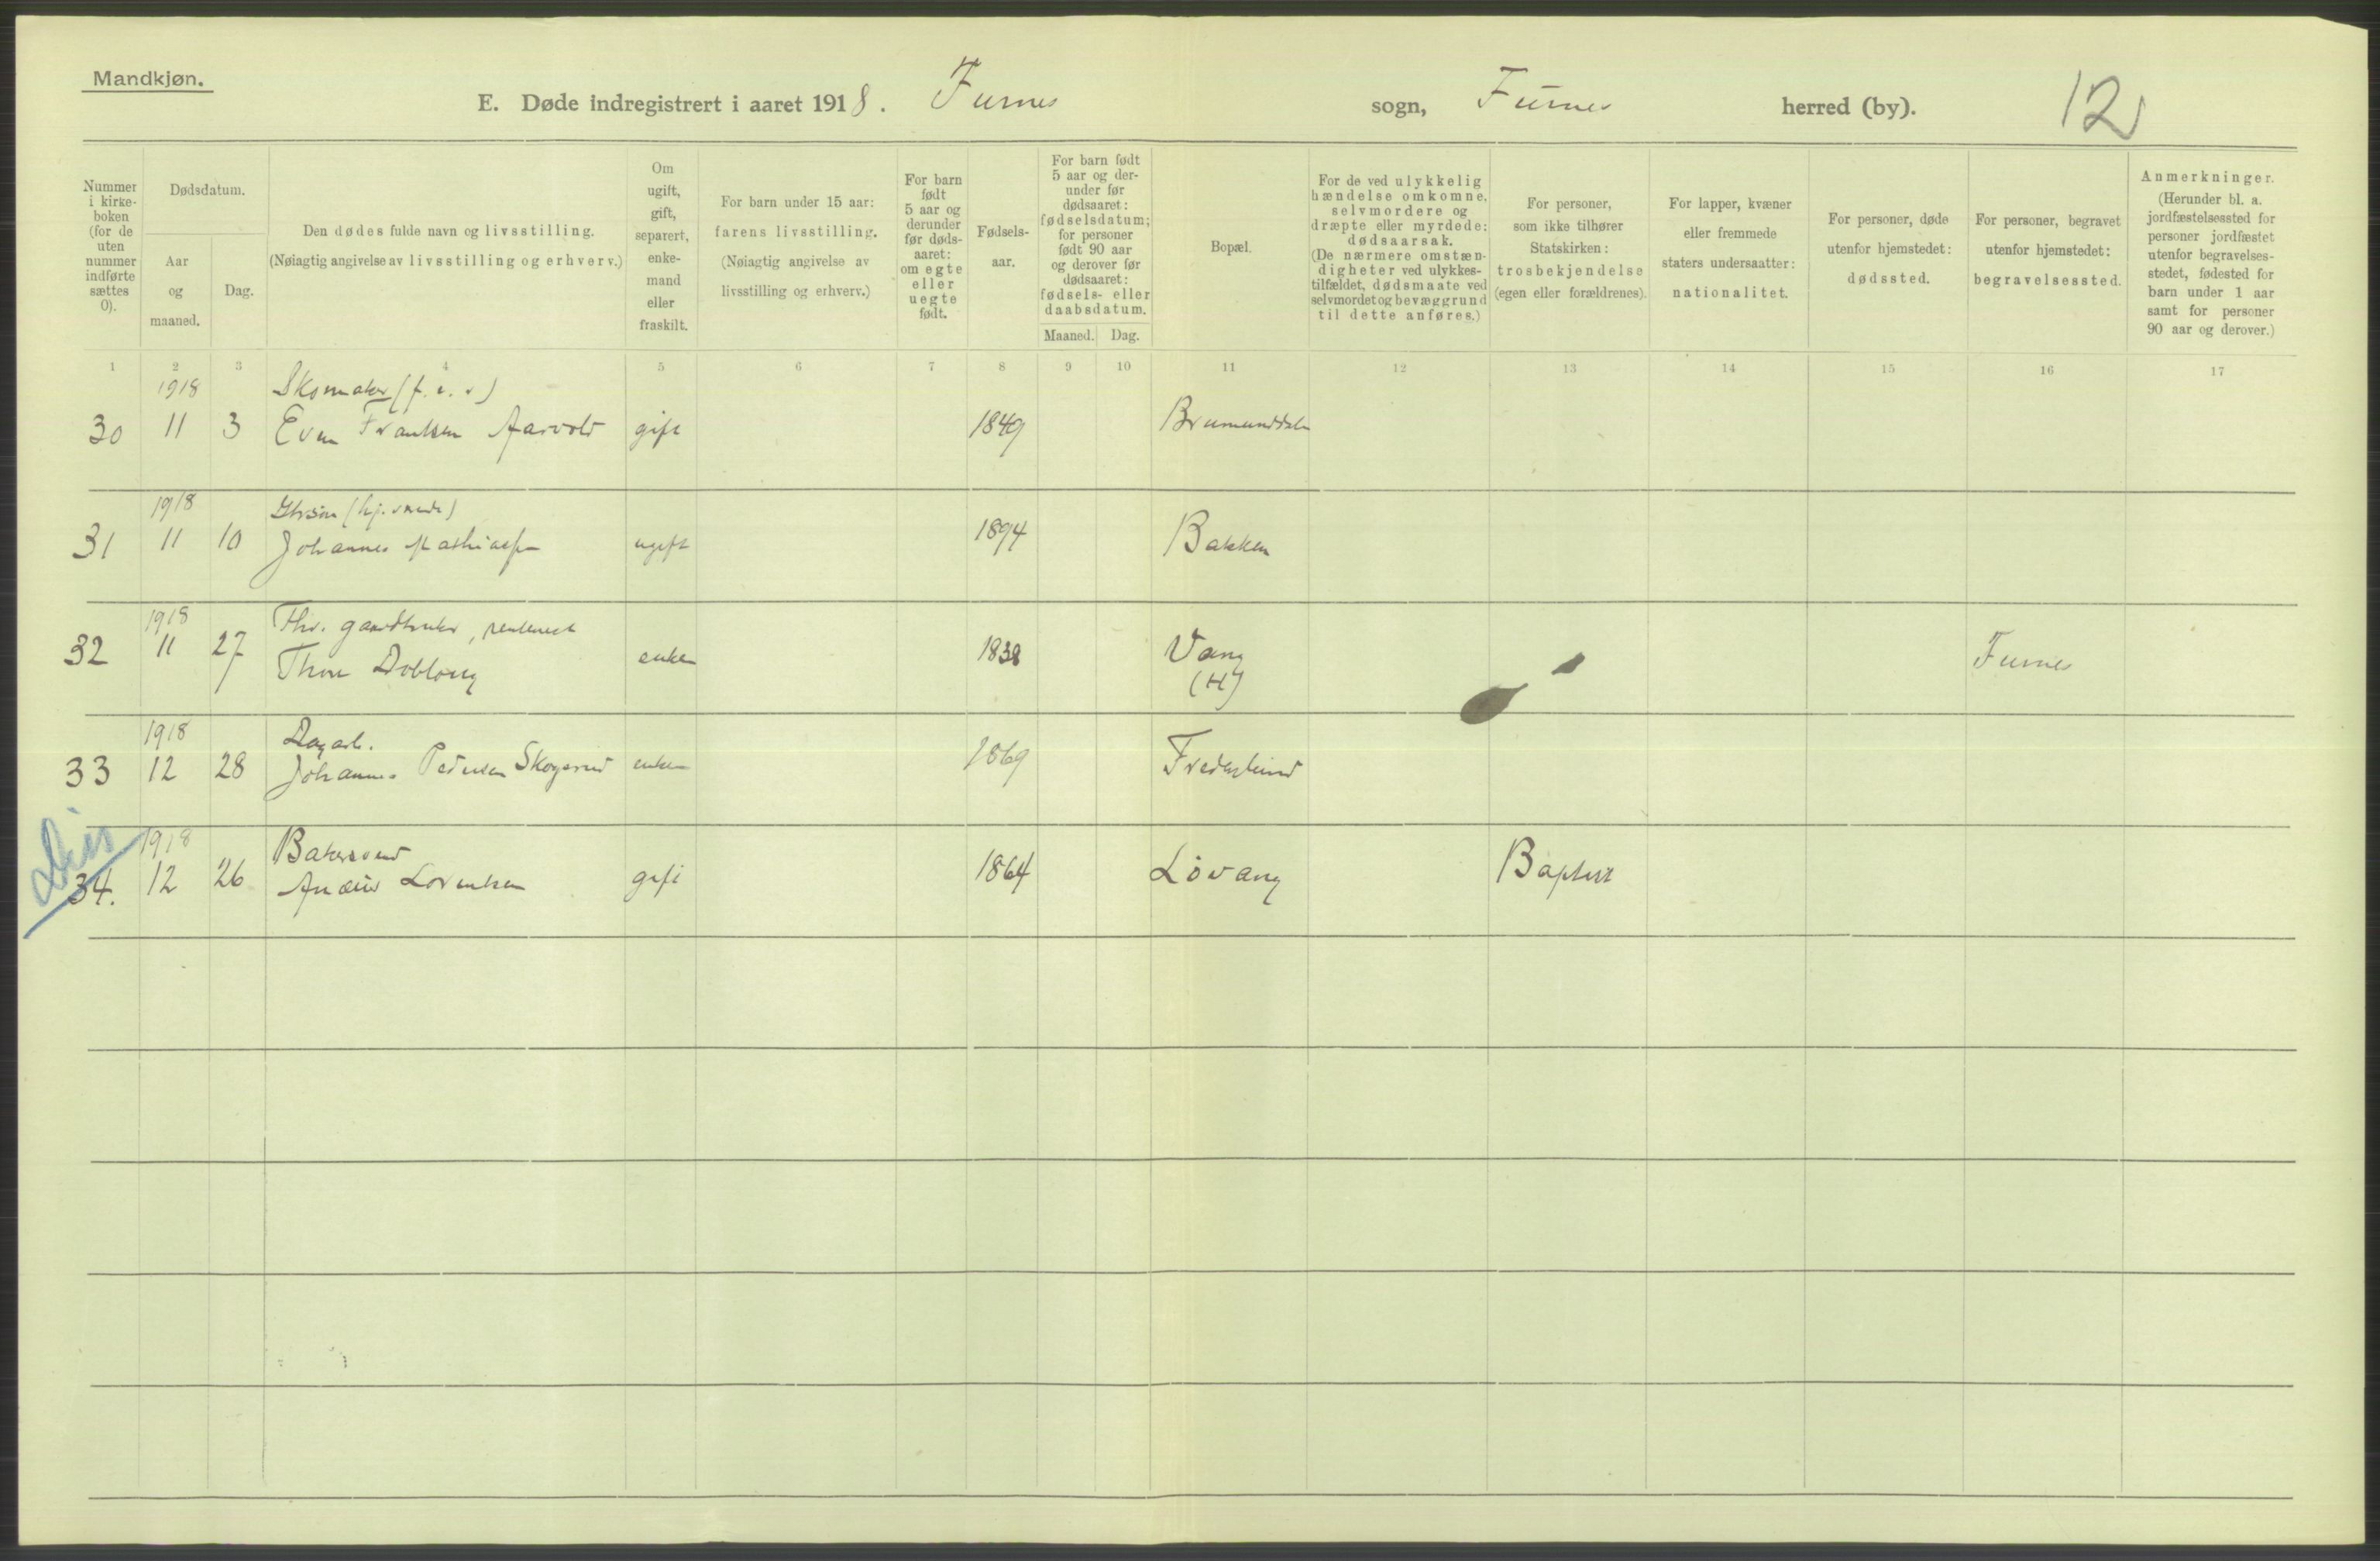 Mandkjøn.
E. Døde indregistrert i aaret 1918. Furnes sogn, Furnes herred (by). 12
Nummer i kirke-boken (for de uten nummer indførte sættes 0).
Dødsdatum.
Aar og maaned.
Dag.
Den dødes fulde navn og livsstilling.
(Nøiagtig angivelse av livsstilling og erhverv.)
Om ugift, gift, separert, enke-mand eller fraskilt.
For barn under 15 aar: farens livsstilling.
(Nøiagtig angivelse av livsstilling og erhverv.)
For barn født 5 aar og derunder før døds-aaret: om egte eller uegte født.
Fødsels-aar.
For barn født 5 aar og der-under før dødsaaret: fødselsdatum; for personer født 90 aar og derover før dødsaaret: fødsels- eller daabsdatum.
Maaned. Dag.
Bopæl.
For de ved ulykkelig hændelse omkomne, selvmordere og dræpte eller myrdede: dødsaarsak.
(De nærmere omstæn-digheter ved ulykkes-tilfældet, dødsmaate ved selvmordet og bevæggrund til dette anføres.)
For personer, som ikke tilhører Statskirken: trosbekjendelse (egen eller forældrenes).
For lapper, kvæner eller fremmede staters undersaatter: nationalitet.
For personer, døde utenfor hjemstedet: dødssted.
For personer, begravet utenfor hjemstedet: begravelsessted.
Anmerkninger.
(Herunder bl. a. jordfæstelsessted for personer jordfæstet utenfor begravelses-stedet, fødested for barn under 1 aar samt for personer 90 aar og derover.)
1 2 3 4 5 6 7 8 9 10 11 12 13 14 15 16 17
1918 Skomaker (f. e. v)
30 11 3 Even Frantsen Aarvold gift 1849 Brumunddalen
1918
31 11 10 Johannes Mathiasen ugift 1894 Bakken
1918 Fhv. gaardbruker,
32 11 27 Thore Dobloug enkem 1838 Vang Furnes
(H)
1918 Dagarb.
33 12 28 Johannes Pedersen Skogerud enkem 1869 Frederlund
1918 Bakersvend
34. 12 26 Lorentsen gift 1864 Løvang Baptist